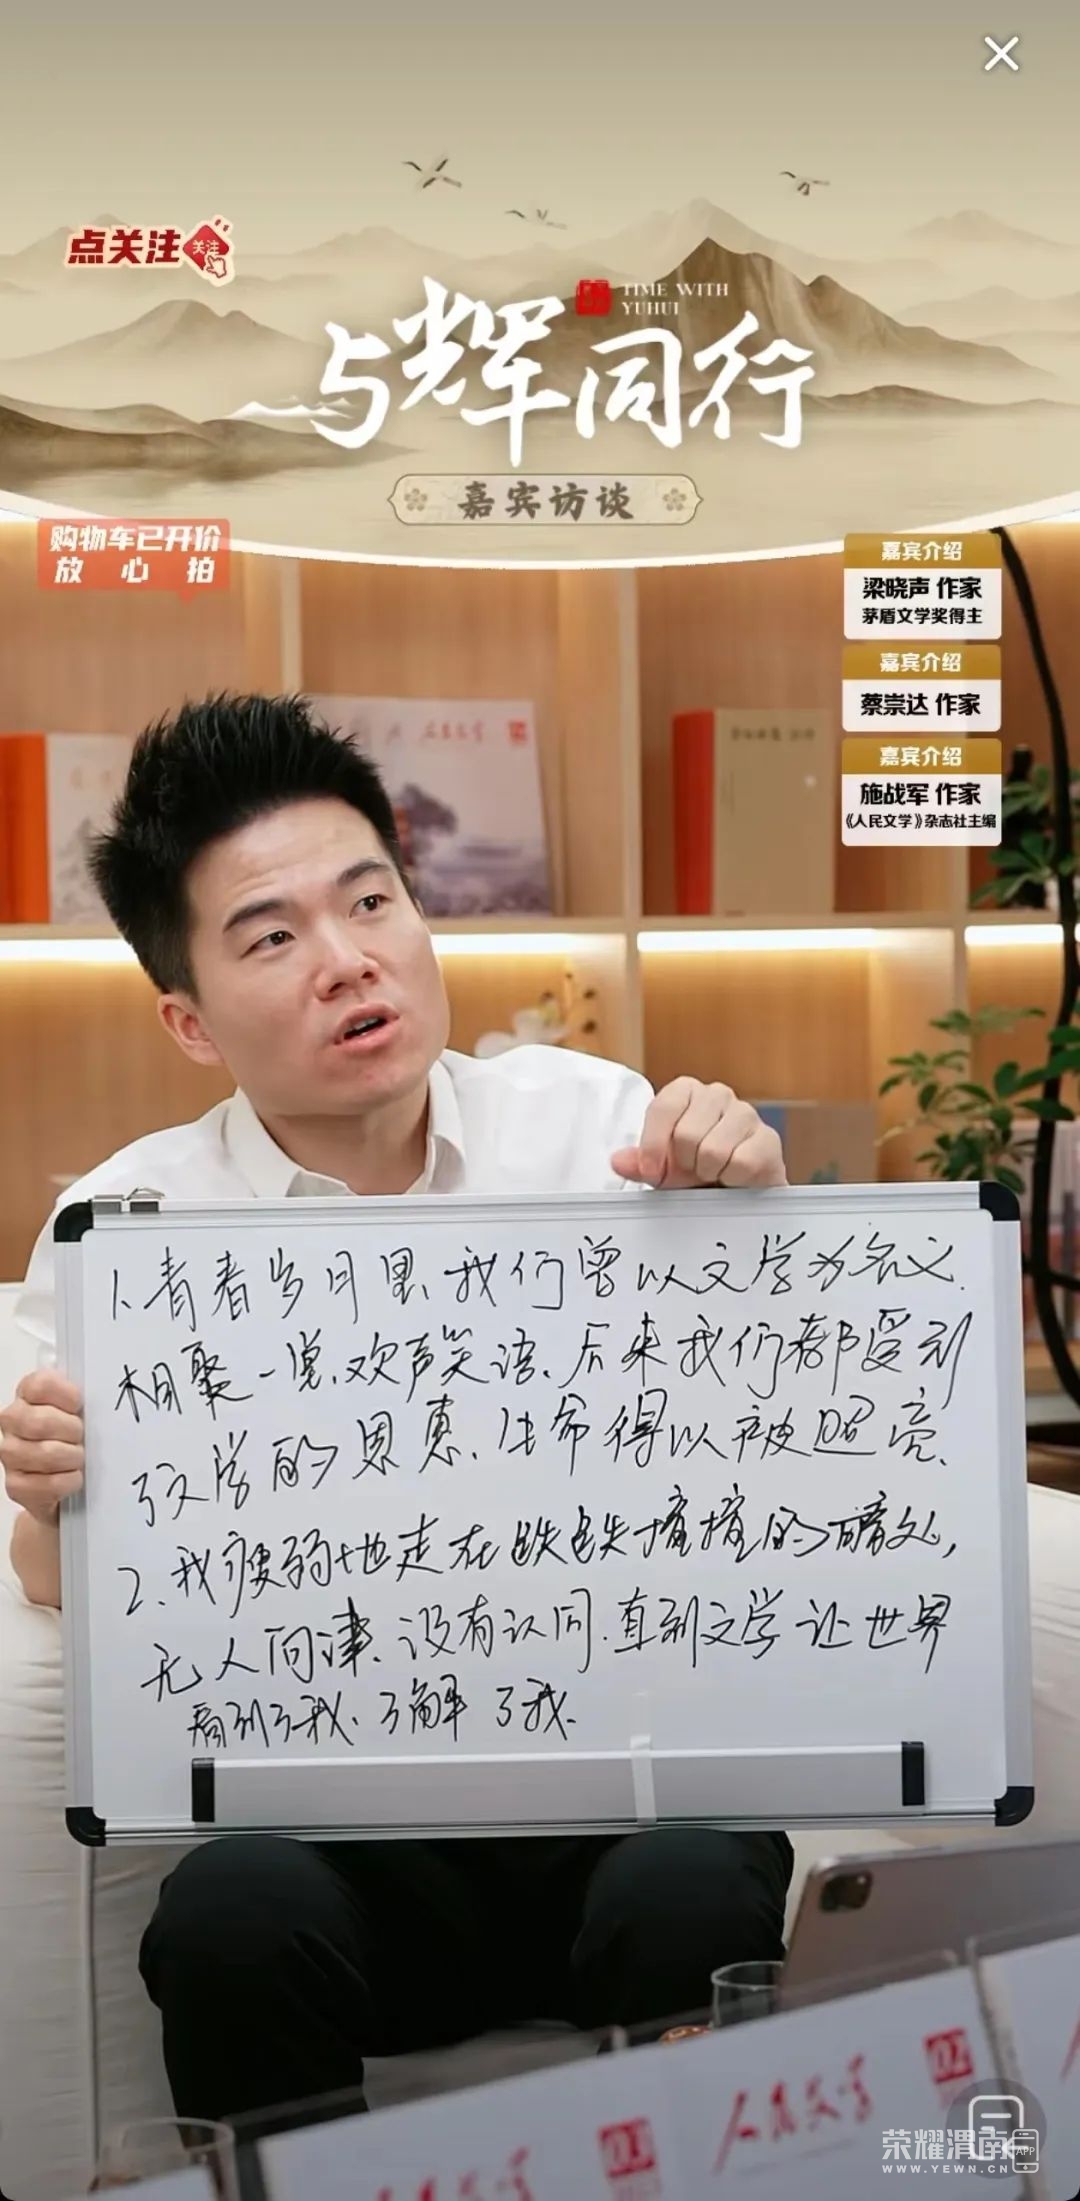 点关注
关注
TIME WITH
YUHUI
与辉同行
嘉宾访谈
购物车已开价
放心拍
嘉宾介绍
梁晓声 作家
茅盾文学奖得主
嘉宾介绍
蔡崇达 作家
嘉宾介绍
施战军 作家
《人民文学》杂志社主编
人民文学
1、青春岁月里、我们曾以文学为名义、
相聚一堂、欢声笑语、后来我们都受到
了文学的恩惠、生命得以被照亮、
2、我疲弱地走在跌跌撞撞的暗处，
无人问津、没有认同、直到文学让世界
看到了我、了解了我、
人民文学
02
人民文学
03
荣耀渭南
APP
WWW.YEWN.CN